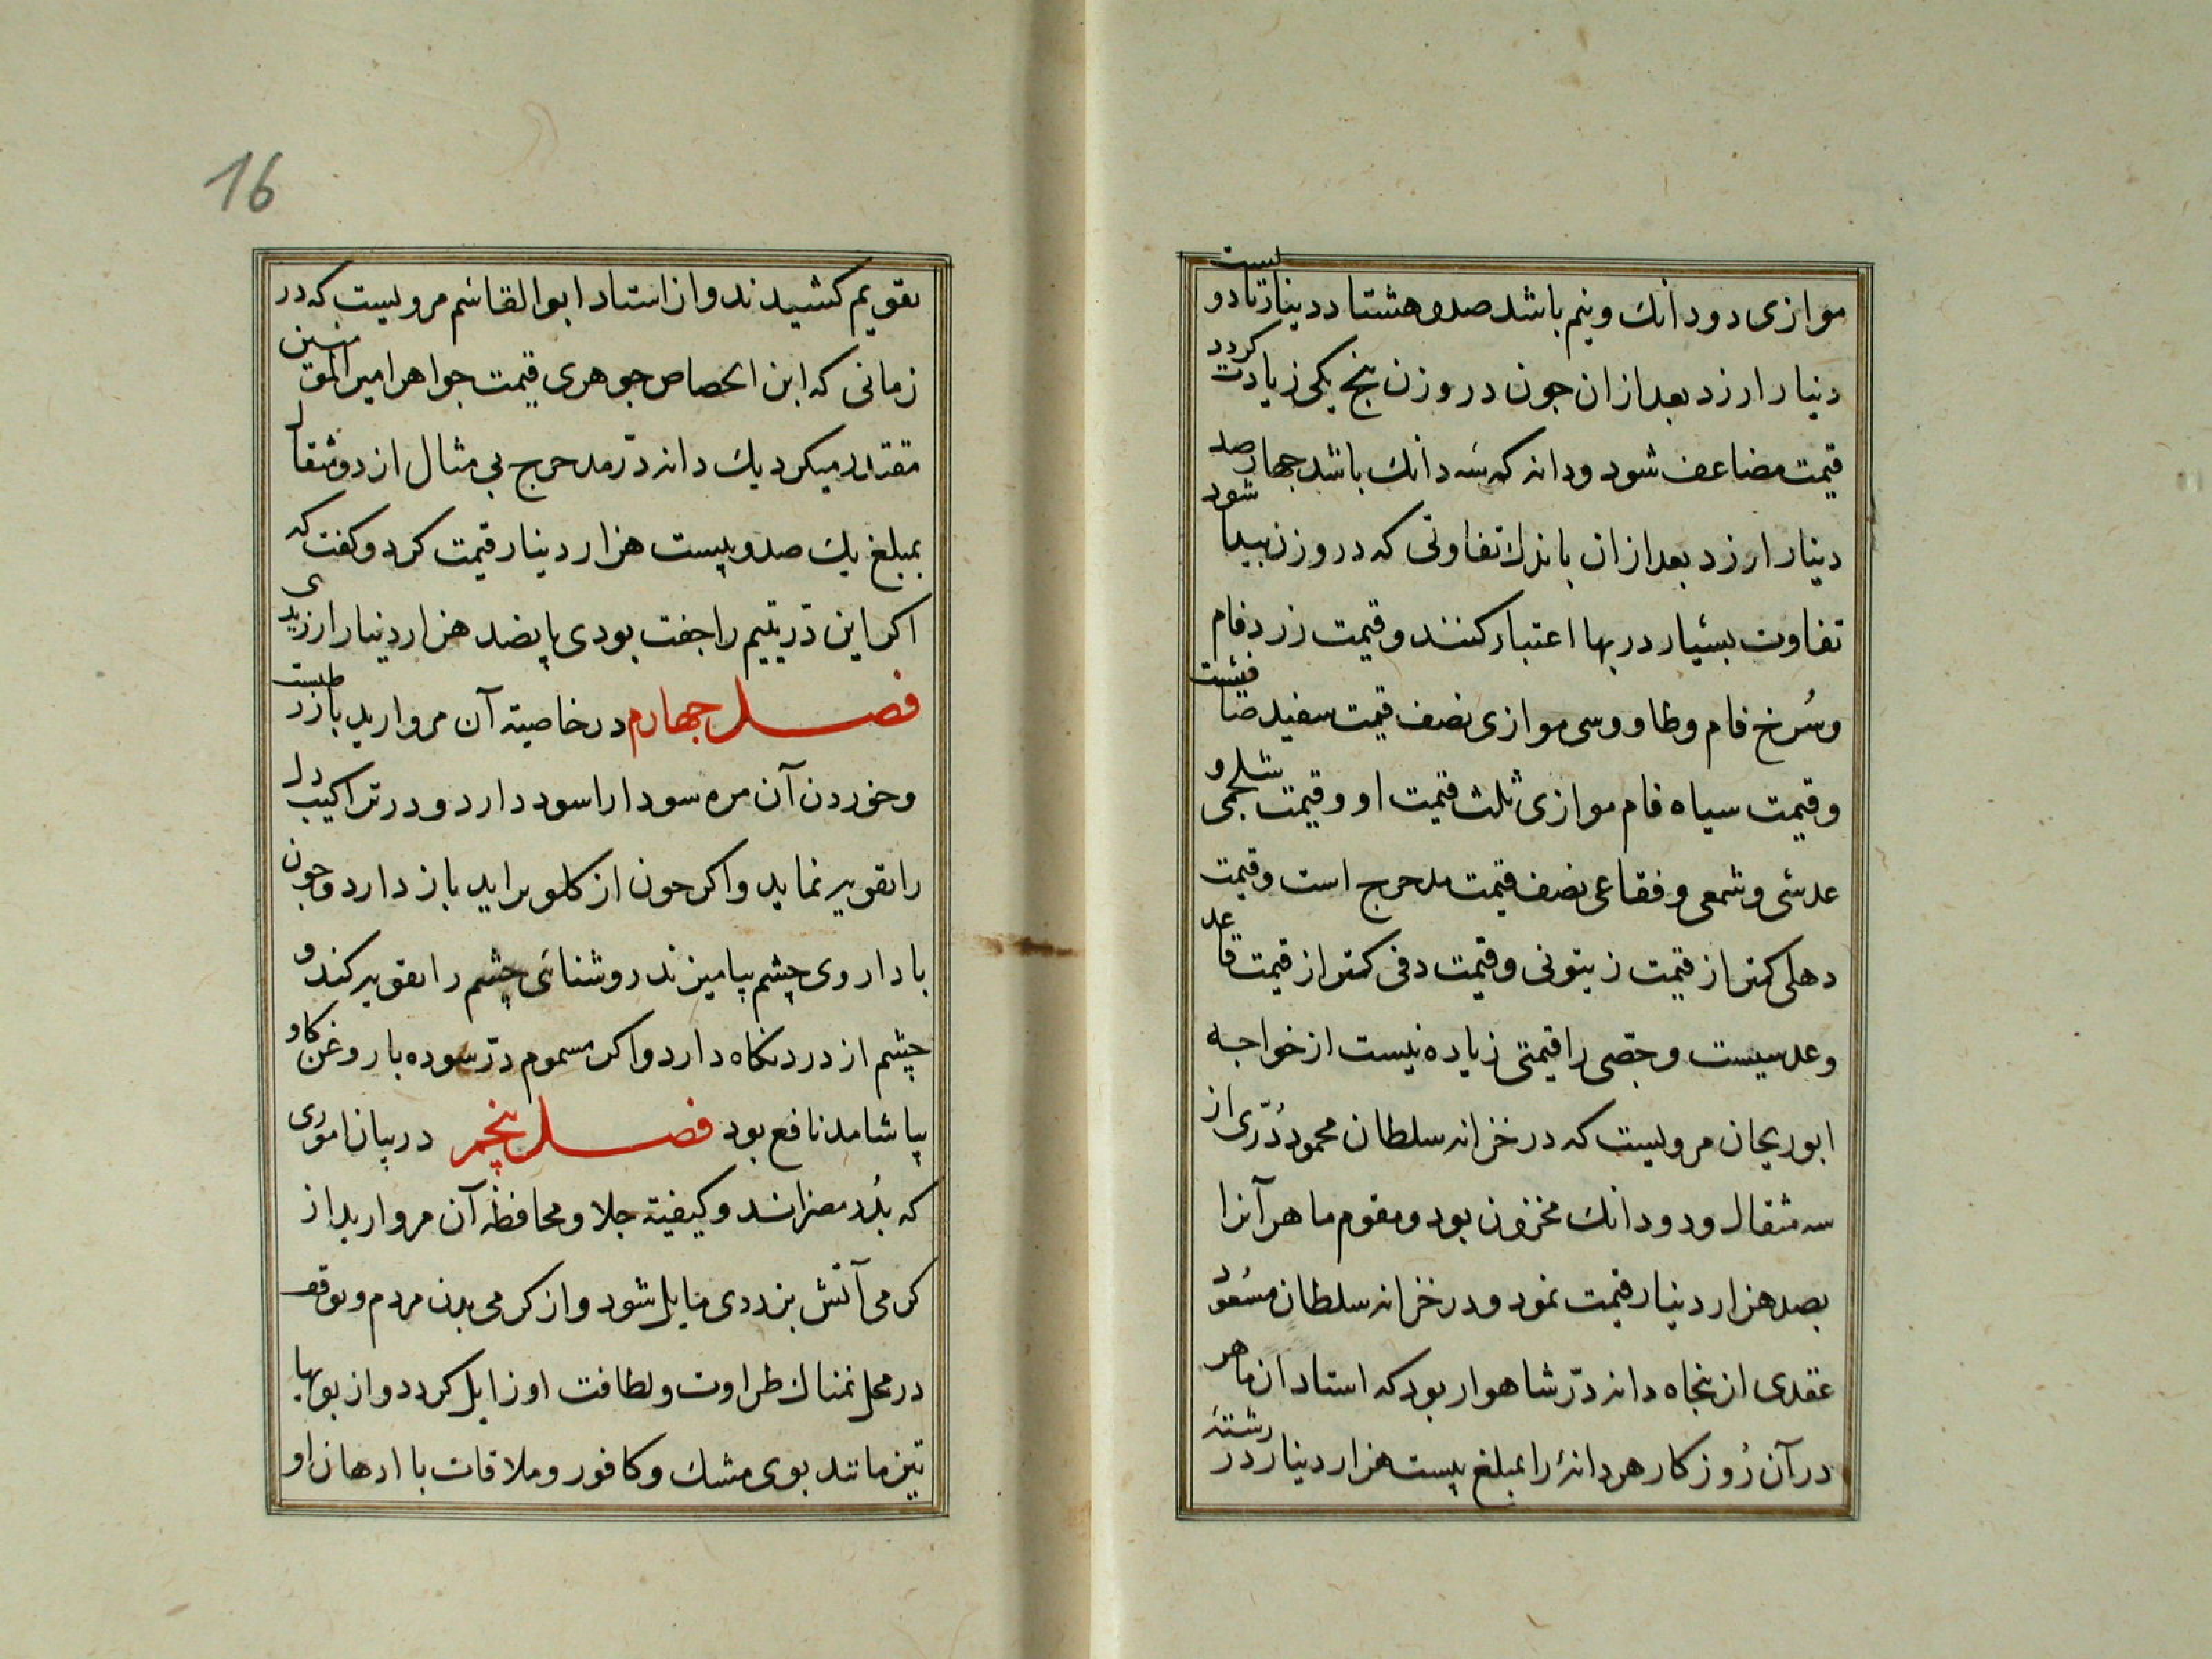 موازی دو دانك و نیم باشد صد و هشتاد دینار تا دویست
دینار ارزد بعد از ان جون در وزن پنج یکی زیادت کردد
قیمت مضاعف شود و دانه که سه دانك باشد جهارصد
دینار ارزد بعد از ان باندك تفاوتی که در وزن پیدا شود
تفاوت بسیار در بها اعتبار کنند و قیمت زرد فام
و سُرخ فام و طاووسی موازی نصف قیمت سفید صافیست
و قیمت سیاه فام موازی ثلث قیمت او و قیمت شلجمی و
عدسی و شمعی و فقاعی نصف قیمت مدحرج است و قیمت
دهلی کمتر از قیمت زیتونی و قیمت دفی کمتر از قیمت قاعد
و عدسیست و جصّی را قیمتی زیاده نیست از خواجه
ابوریحان مرویست که در خزانه سلطان محمود دُرّی از
سه مثقال و دو دانك مخزون بود و مقوم ماهر آنرا
بصد هزار دینار قیمت نمود و در خزانه سلطان مسعُود
عقدی از پنجاه دانه درّ شاهوار بود که استادان ماهر
در آن رُوزکار هر دانهٔ را بمبلغ بیست هزار دینار در رشتهٔ
16
تقویم کشیدند و از استاد ابوالقاسم مرویست که در
زمانی که ابن الحصاص جوهری قیمت جواهر امیر المؤمنین
مقتدر میکرد یك دانه درّ مدحرج بی مثال از دو مثقال
بمبلغ یك صد و بیست هزار دینار قیمت کرد و کفت که
اکر این درّ یتیم را جفت بودی پانصد هزار دینار ارزیدی
فصل جهارم در خاصیته آن مروارید بازرطبست
و خوردن آن مره سودا را سود دارد و در تراکیب دل
را تقویه نماید و اکر خون از کلو براید باز دارد و جون
با داروی چشم بیامیزند روشنائی چشم را تقویه کند و
چشم از درد نکاه دارد و اکر مسموم درّ سوده با روغن کاو
بیاشامد نافع بود فصل پنجم در بیان اموری
که بدُر مضرانند و کیفیته جلا و محافظهٔ آن مروارید از
کرمی آتش بزردی مایل شود و از کرمی بدن مردم و توقف
در محل نمناك طراوت و لطافت او زایل کردد و از بویها
تیز مانند بوی مشك و کافور و ملاقات با ادهان او